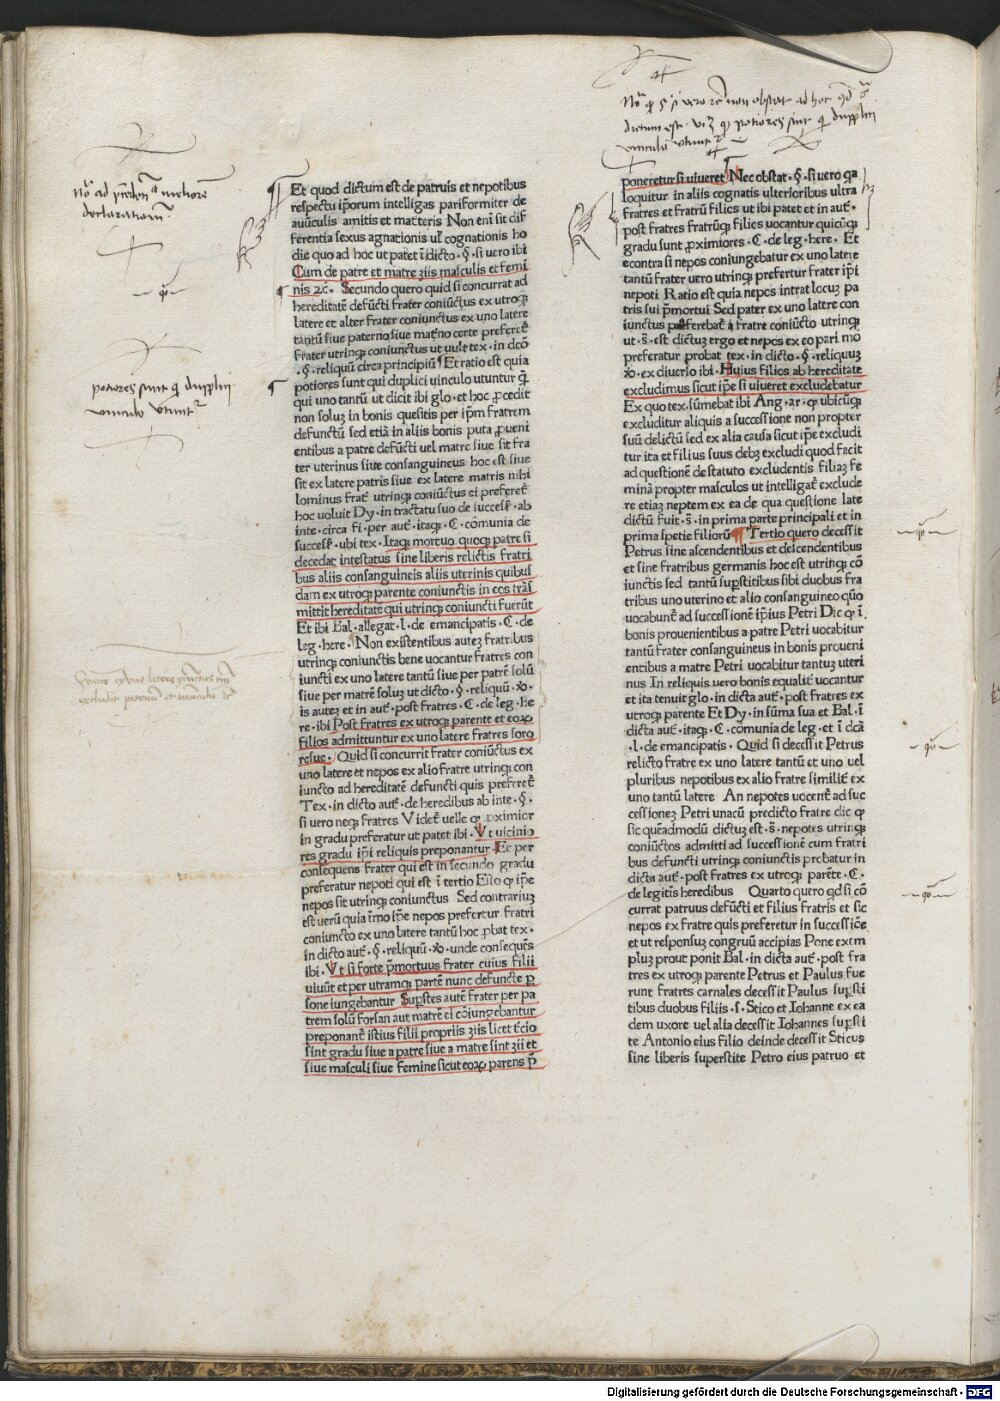 Et quod dictum est de patruis et nepotibus
respectu ip̄orum intelligas pariformiter de
auūculis amitis et mat̄teris Non eni͞ sit dif
ferentia sexus agnationis ul̄ cognationis ho
die quo ad hoc ut patet i͞ dicto · § · si uero ibi
Cum de patre et matre ꝫiis masculis et femi
nis ⁊c̄ · Secundo quero quid si concurrat ad
hereditatē defūcti frater coniūctus ex utroqꝫ
latere et alter frater coniunctus ex uno latere
tantū siue paterno siue mat̄no certe preferet̄
frater utrinqꝫ coniunctus ut uult tex · in dc̄o
· § · reliquū circa principiū ¶ Et ratio est quia
potiores sunt qui duplici uinculo utuntur q̄
qui uno tantū ut dicit ibi glo · et hoc ꝓcedit
non soluꝫ in bonis quesitis per ip̄m fratrem
defunctū sed etiā in aliis bonis puta ꝓueni
entibus a patre defūcti uel matre siue sit fra
ter uterinus siue consanguineus hoc est siue
sit ex latere patris siue ex latere matris nihi
lominus frat̄ utrinqꝫ coniūctus ei preferet̄
hoc uoluit Dy · in tractatu suo de succeſſ · ab
inte · circa fi · per aut̄ · itaqꝫ · C · cōmunia de
succeſſ · ubi tex · Itaqꝫ mortuo quoqꝫ patre si
decedat intestatus sine liberis relictis fratri
bus aliis consanguineis aliis uterinis quibus
dam ex utroqꝫ parente coniunctis in eos trās
mittit hereditatē qui utrinqꝫ coniuncti fuerūt
Et ibi Bal · allegat · l · de emancipatis · C · de
leg · here · Non existentibus auteꝫ fratribus
utrinqꝫ coniunctis bene uocantur fratres con
iuncti ex uno latere tantū siue per patrē solū
siue per matrē soluꝫ ut dicto · § · reliquū · ꝟo ·
is auteꝫ et in aut̄ · post fratres · C · de leg · he
re · ibi Post fratres ex utroqꝫ parente et eoꝝ
filios admittuntur ex uno latere fratres soro
resue · Quid si concurrit frater coniūctus ex
uno latere et nepos ex alio fratre utrinqꝫ con
iuncto ad hereditatē defuncti quis preferet̄
Tex · in dicto aut̄ · de heredibus ab inte · § ·
si uero neqꝫ fratres Videt̄ uelle ꝙ ꝓximior
in gradu preferatur ut patet ibi · Vt uicinio
res gradu ip̄i reliquis preponantur · Et per
consequens frater qui est in secundo gradu
preferatur nepoti qui est i͞ tertio Esto ꝙ ip̄e
nepos sit utrinqꝫ coniunctus Sed contrariuꝫ
est uerū quia i͞mo ip̄e nepos prefertur fratri
coniuncto ex uno latere tantū hoc ꝓbat tex ·
in dicto aut̄ · § · reliquū · ꝟo · unde consequēs
ibi · Vt si forte p̄mortuus frater cuius filii
uiuūt et per utramqꝫ partē nunc defuncte ꝑ
sone iungebantur Suꝑstes autē frater per pa
trem solū forsan aut matrē ei cōiungebantur
preponant̄ istius filii propriis ꝫiis licet t̄cio
sint gradu siue a patre siue a matre sint ꝫii et
siue masculi siue femine sicut eoꝝ parens p̄
poneretur si uiueret Nec obstat · § · si uero qa
loquitur in aliis cognatis ulterioribus ultra
fratres et fratrū filios ut ibi patet et in aut̄ ·
post fratres fratrūqꝫ filios uocantur quicūqꝫ
gradu sunt ꝓximiores · C · de leg · here · Et
econtra si nepos coniungebatur ex uno latere
tantū frater uero utrinqꝫ prefertur frater ip̄i
nepoti Ratio est quia nepos intrat locuꝫ pa
tris sui p̄mortui Sed pater ex uno latere con
iunctus preferebat̄ a fratre coniūcto utrinqꝫ
ut · s̄ · est dictuꝫ ergo et nepos ex eo pari mo
preferatur probat tex · in dicto · § · reliquuꝫ
ꝟo · ex diuerso ibi · Huius filios ab hereditate
excludimus sicut ip̄e si uiueret excludebatur
Ex quo tex · sūmebat ibi Ang · ar · ꝙ ubicūqꝫ
excluditur aliquis a successione non propter
suū delictū sed ex alia causa sicut ip̄e excludi
tur ita et filius suus debꝫ excludi quod facit
ad questionē de statuto excludentis filiaꝫ fe
minā propter masculos ut intelligat̄ exclude
re etiaꝫ neptem ex ea de qua questione late
dictū fuit · s̄ · in prima parte principali et in
prima spetie filiorū ¶ Tertio quero decessit
Petrus sine ascendentibus et descendentibus
et sine fratribus germanis hoc est utrinqꝫ cō
iunctis sed tantū suꝑstitibus sibi duobus fra
tribus uno uterino et alio consanguineo quō
uocabunt̄ ad successionē ip̄ius Petri Dic ꝙ i͞ ·
bonis prouenientibus a patre Petri uocabitur
tantū frater consanguineus in bonis proueni
entibus a matre Petri uocabitur tantuꝫ uteri
nus In reliquis uero bonis equalit̄ uocantur
et ita tenuit glo · in dicta aut̄ · post fratres ex
utroqꝫ parente Et Dy · in sūma sua et Bal · i͞
dicta aut̄ · itaqꝫ · C · cōmunia de leg · et i͞ dc̄a
· l · de emancipatis · Quid si decessit Petrus
relicto fratre ex uno latere tantū et uno uel
pluribus nepotibus ex alio fratre similit̄ ex
uno tantū latere An nepotes uocent̄ ad suc
cessioneꝫ Petri unacū predicto fratre dic ꝙ
sic queādmodū dictuꝫ est · s̄ · nepotes utrinqꝫ
coniūctos admitti ad successionē cum fratri
bus defuncti utrinqꝫ coniunctis probatur in
dicta aut̄ · post fratres ex utroqꝫ parēte · C ·
de legitīs heredibus Quarto quero qd̄ si cō
currat patruus defūcti et filius fratris et sic
nepos ex fratre quis preferetur in successiōe
et ut responsuꝫ congruū accipias Pone exem
pluꝫ prout ponit Bal · in dicta aut̄ · post fra
tres ex utroqꝫ parente Petrus et Paulus fue
runt fratres carnales decessit Paulus suꝑsti
tibus duobus filiis · s · Stico et Iohanne ex ea
dem uxore uel alia decessit Iohannes suꝑsti
te Antonio eius filio deinde decessit Sticus
sine liberis superstite Petro eius patruo et
Digitalisierung gefördert durch die Deutsche Forschungsgemeinschaft - DFG